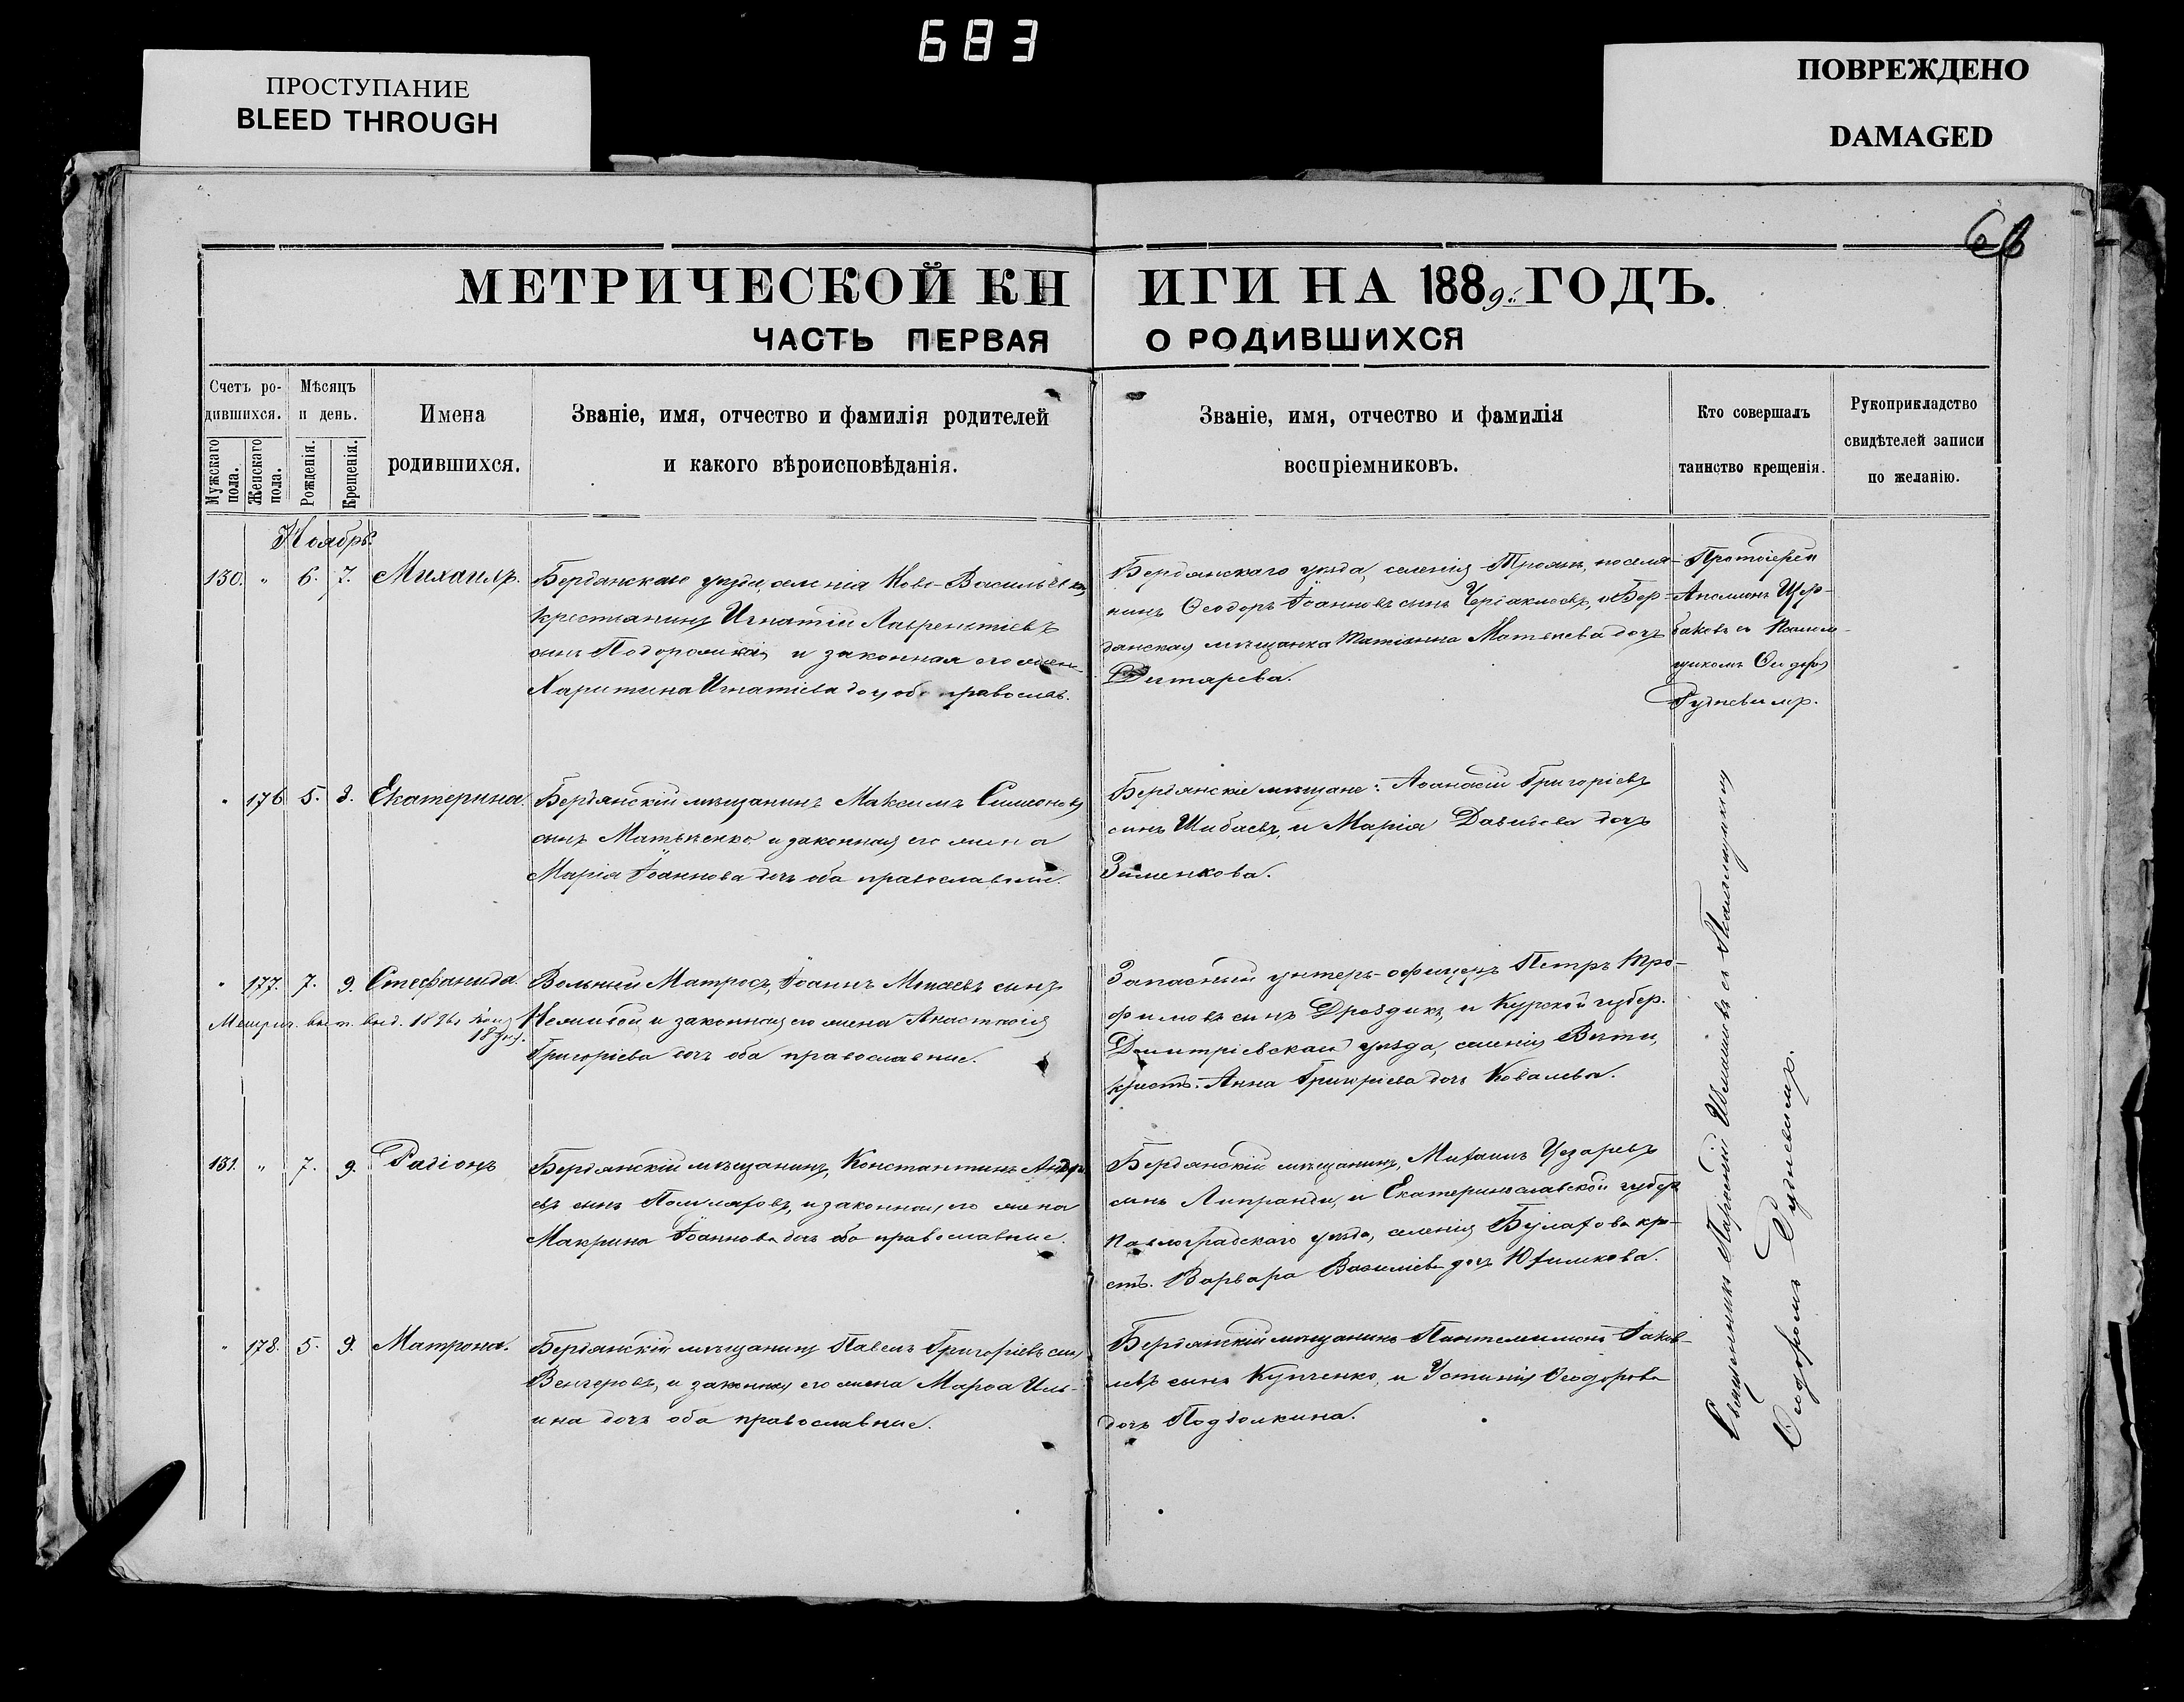 683
ПРОСТУПАНИЕ
BLEED THROUGH
ПОВРЕЖДЕНО
DAMAGED
МЕТРИЧЕСКОЙ КНИГИ НА 1889 ГОДЪ.
ЧАСТЬ ПЕРВАЯ О РОДИВШИХСЯ
Счетъ ро-
дившихся.
Мужскаго пола.
Женскаго пола.
Мѣсяцъ
и день.
Рожденія.
Крещенія.
Имена
родившихся.
Званіе, имя, отчество и фамилія родителей
и какого вѣроисповѣданія.
Званіе, имя, отчество и фамилія
воспріемниковъ.
Кто совершалъ
таинство крещенія.
Рукоприкладство
свидѣтелей записи
по желанію.
Ноябрь
130. " 6. 7. Михаилъ.
Бердянскаго уѣзда, селенія Ново-Васильевки
крестьянинъ Игнатій Лаврентіевъ
сынъ и законная его жена
Харитина Игнатіева дочь оба православ.
Бердянскаго уѣзда, селенія Троянъ, поселя-
нинъ Ѳеодоръ Іоанновъ сынъ и Бер-
дянская мѣщанка Татіанна Матвѣева дочь
Дигтярева.
Протоіерей
Щер-
баковъ съ Псалом-
щикомъ
Рудневымъ.
" 176 5. 8. Екатерина.
Бердянскій мѣщанинъ Максимъ Симеоновъ
сынъ Матвѣенко и законная его жена
Марія Іоаннова дочь оба православные.
Бердянскіе мѣщане: Аѳанасій Григоріевъ
сынъ Шибаевъ, и Марія Давидова дочь
Зименкова.
" 177. 7. 9. Стефанида.
Вольный Матросъ, Іоаннъ сынъ
и законная его жена Анастасія
Григоріева дочь оба православные.
Запасный унтеръ-офицеръ Петръ Тро-
фимовъ сынъ Дроздикъ, и Курской губер.
Дмитріевскаго уѣзда, селенія
крест. Анна Григоріева дочь Ковалева.
131. " 7. 9. Радіонъ
Бердянскій мѣщанинъ, Константинъ Андре-
евъ сынъ и законная его жена
Макрина Іоаннова дочь оба православные.
Бердянскій мѣщанинъ, Михаилъ Цезаревъ
сынъ Липранди, и Екатеринославской губер
Павлоградскаго уѣзда, селенія Булахова кре-
ст. Варвара Василіева дочь
" 178. 5. 9. Матрона.
Бердянскій мѣщанинъ Павелъ Григоріевъ сынъ
Венгеровъ, и законная его жена Марѳа Иль-
ина дочь оба православные.
Бердянскій мѣщанинъ Пантелимонъ Іаков-
левъ сынъ Купченко, и Устинія Ѳеодорова
дочь Подволкина.
Священникъ съ Псаломщикомъ
Ѳеодоромъ Рудневымъ.